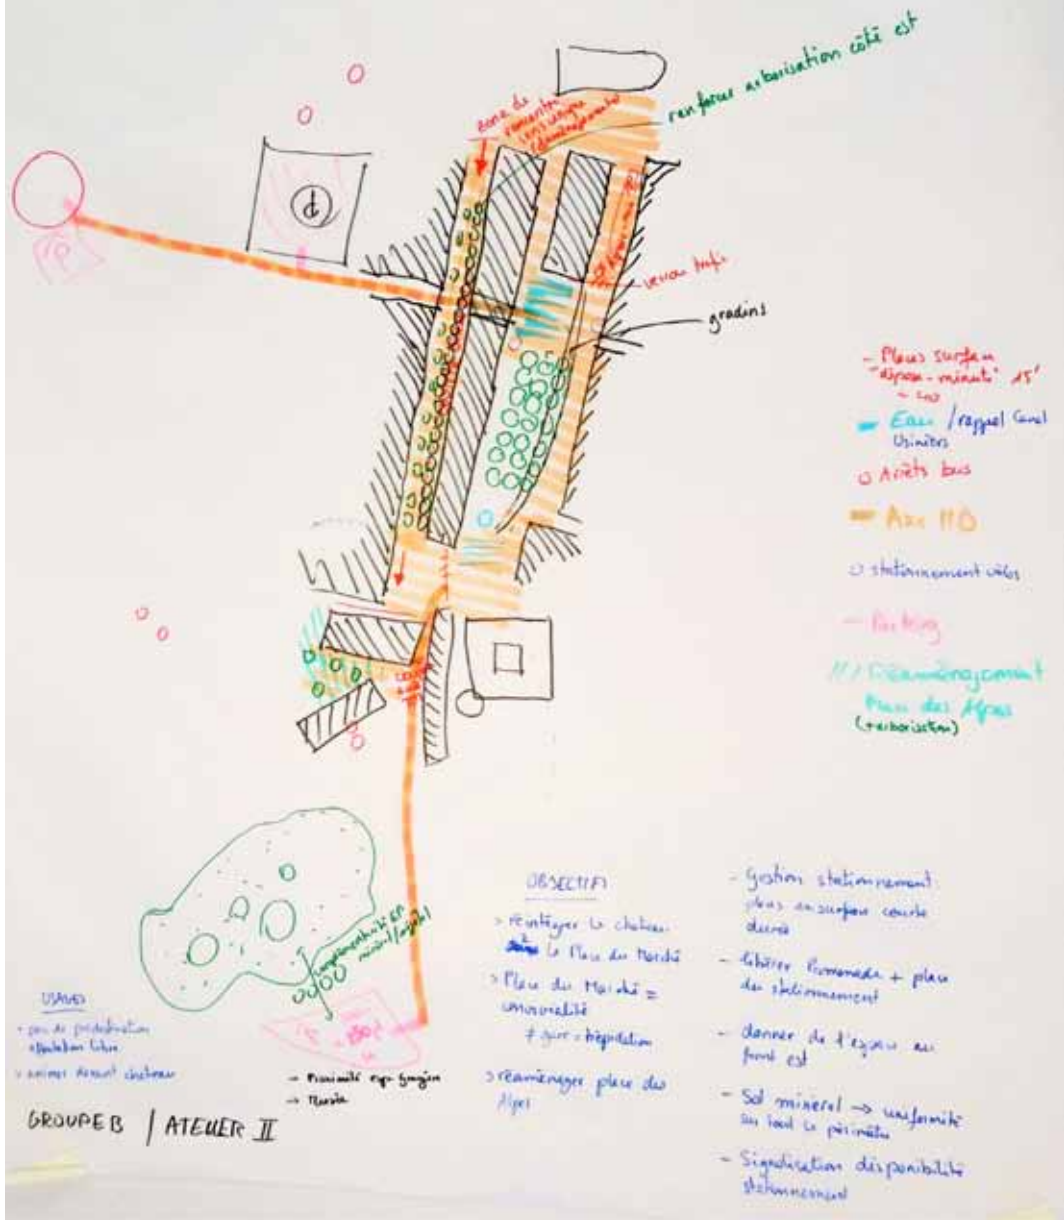 renforcer arborisation côté est
Zone de
rencontre
sens unique
verrou trafic
gradins
- Places surface
"dépose-minute" 15'
Eau / rappel Canal
Usiniers
Arrêts bus
Axe MD
stationnement vélos
Parking
Réaménagement
Place des Alpes
(+ arborisation)
complémentarité
minéral/végétal
USAGES
> animer devant château
→ Proximité
OBJECTIFS
> réintégrer le château
la Place du Marché
> Place du Marché =
convivialité
≠ gare = trépidation
> réaménager place des
Alpes
- Gestion stationnement
places en surface courte
durée
- libérer Promenade + place
du stationnement
- donner de l'espace au
front est
- Sol minéral → uniformité
sur tout le périmètre
- Signalisation disponibilité
stationnement
GROUPE B / ATELIER II